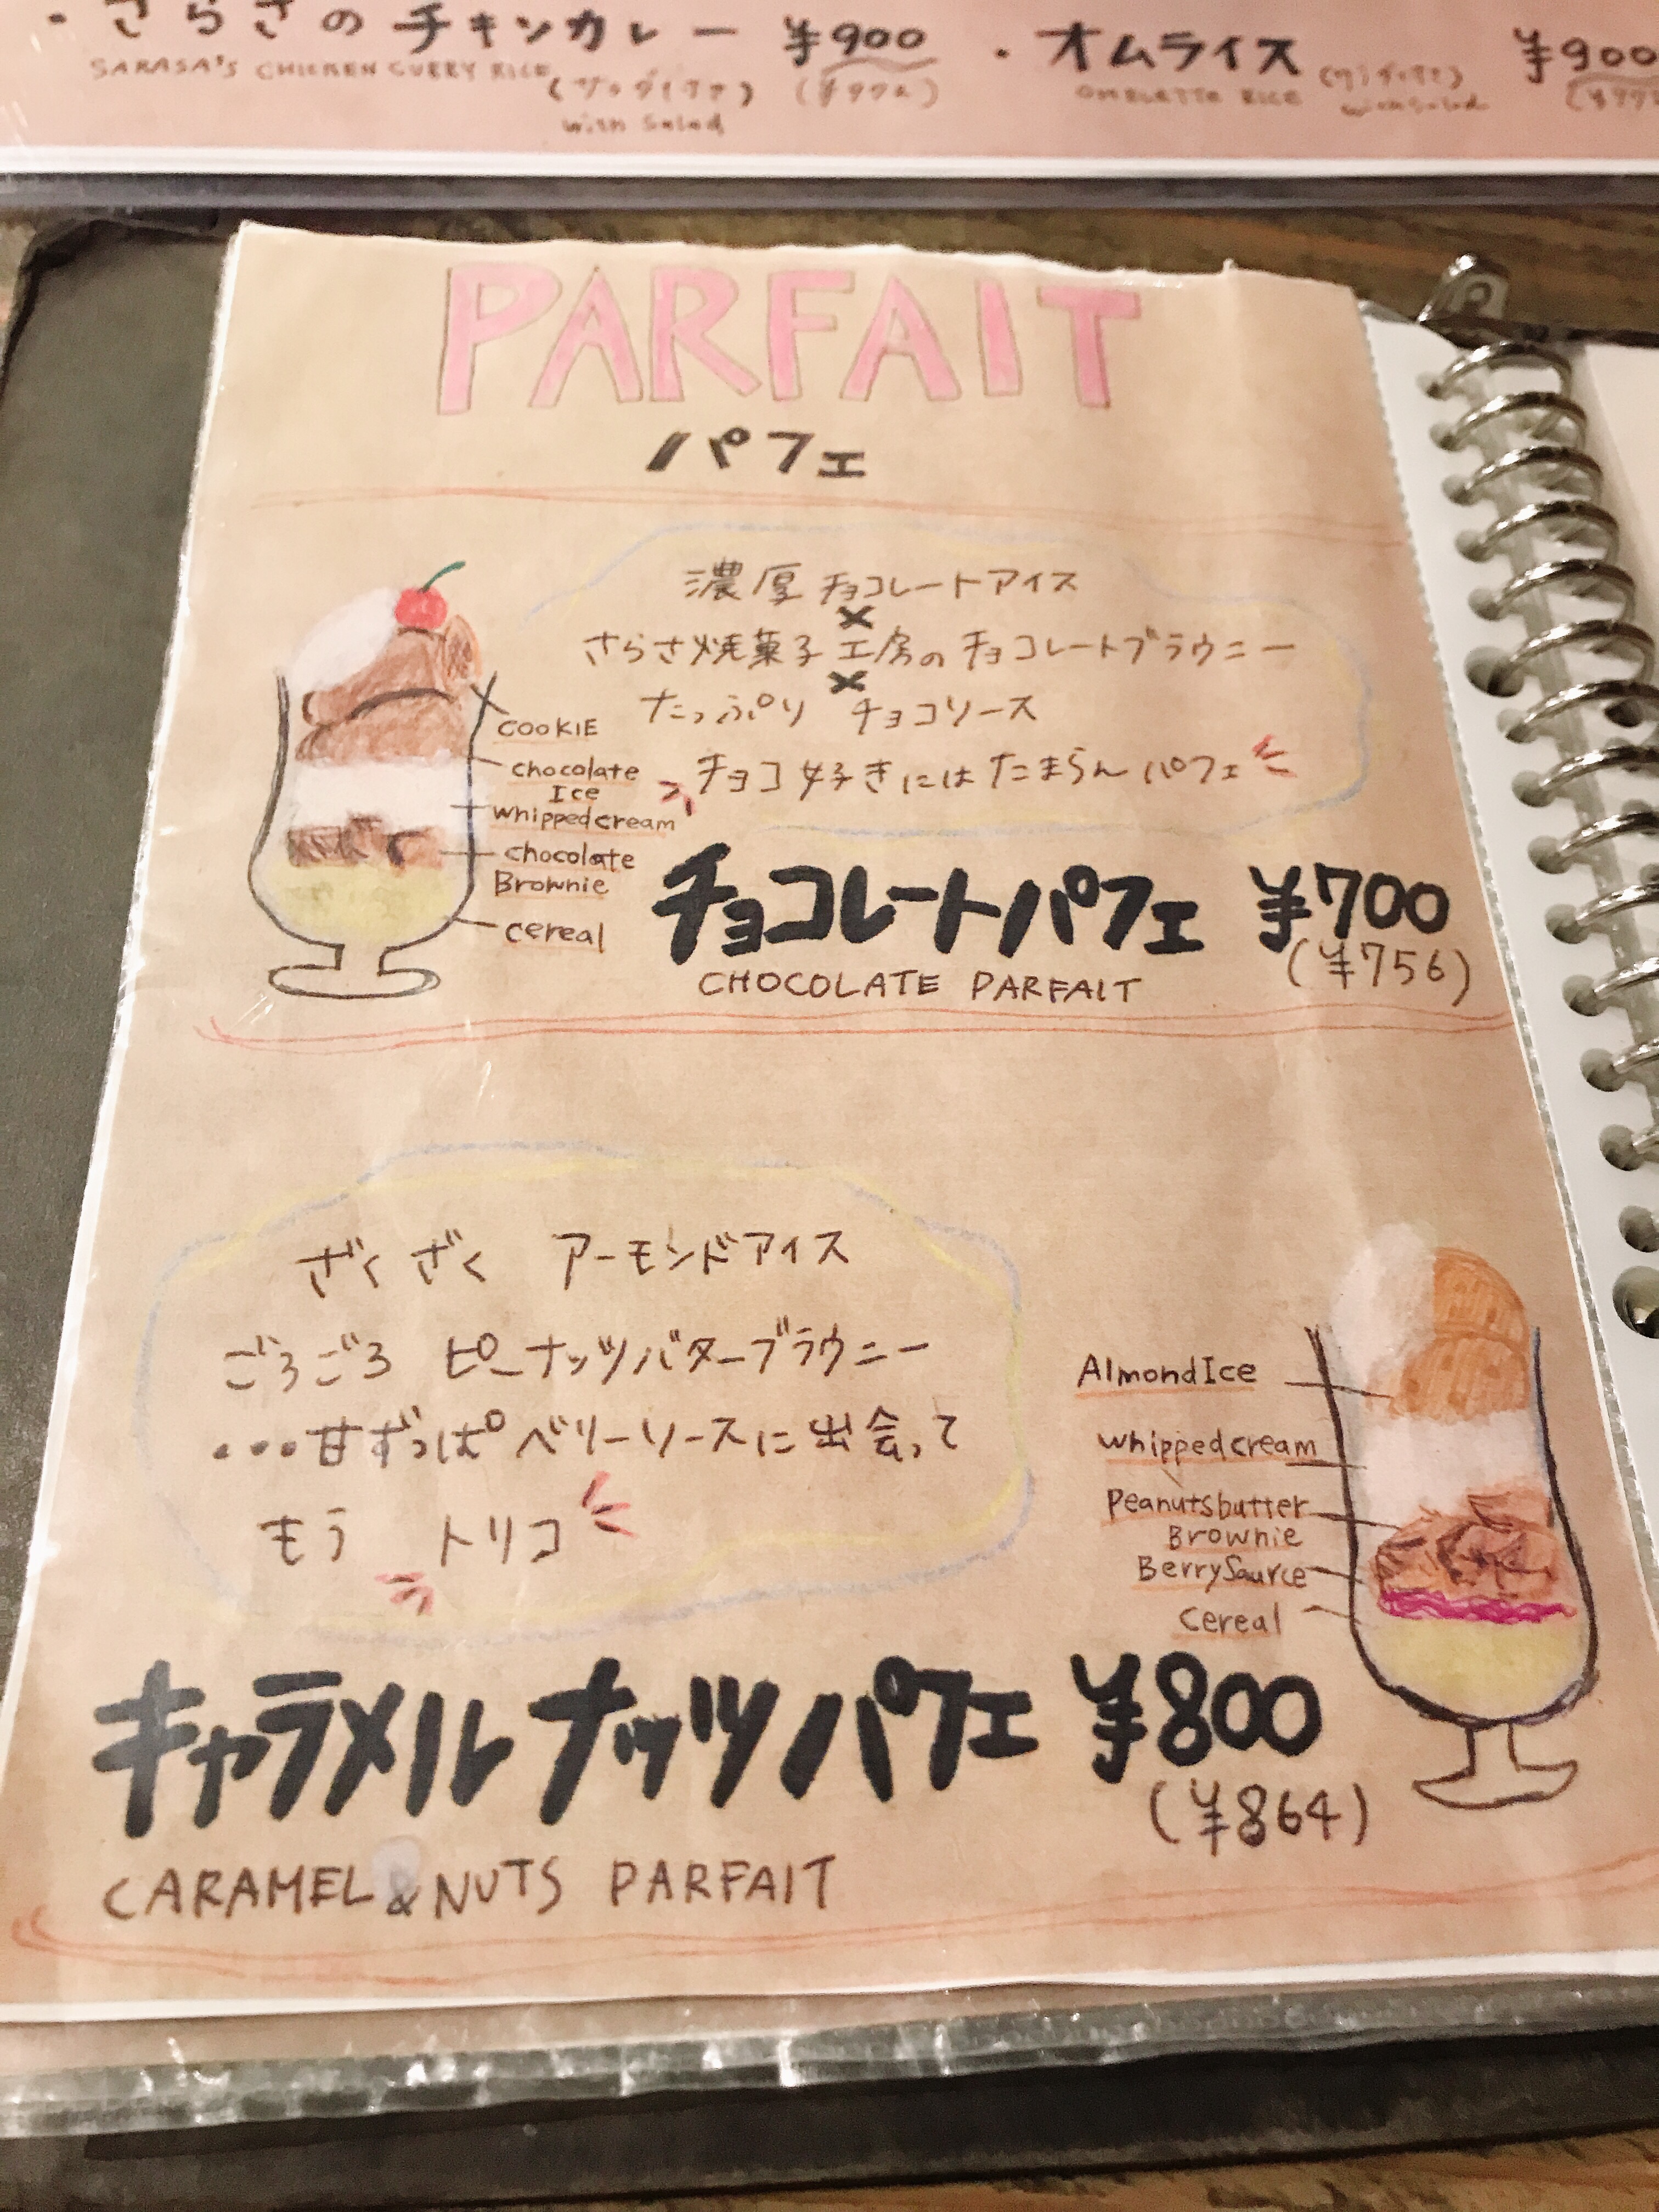 ・さらさのチキンカレー ¥900
SARASA'S CHICKEN CURRY RICE
with Salad
・オムライス ¥900
OMELETTE RICE with Salad
PARFAIT
パフェ
濃厚チョコレートアイス
×
さらさ焼菓子工房のチョコレートブラウニー
×
たっぷり チョコソース
チョコ好きにはたまらんパフェ
COOKIE
chocolate
Ice
whipped cream
chocolate
Brownie
cereal
チョコレートパフェ ¥700
(¥756)
CHOCOLATE PARFAIT
ざくざく アーモンドアイス
ごろごろ ピーナッツバターブラウニー
・・・甘ずっぱベリーソースに出会って
もう トリコ
Almond Ice
whipped cream
Peanutsbutter
Brownie
Berry Saurce
Cereal
キャラメルナッツパフェ ¥800
(¥864)
CARAMEL & NUTS PARFAIT